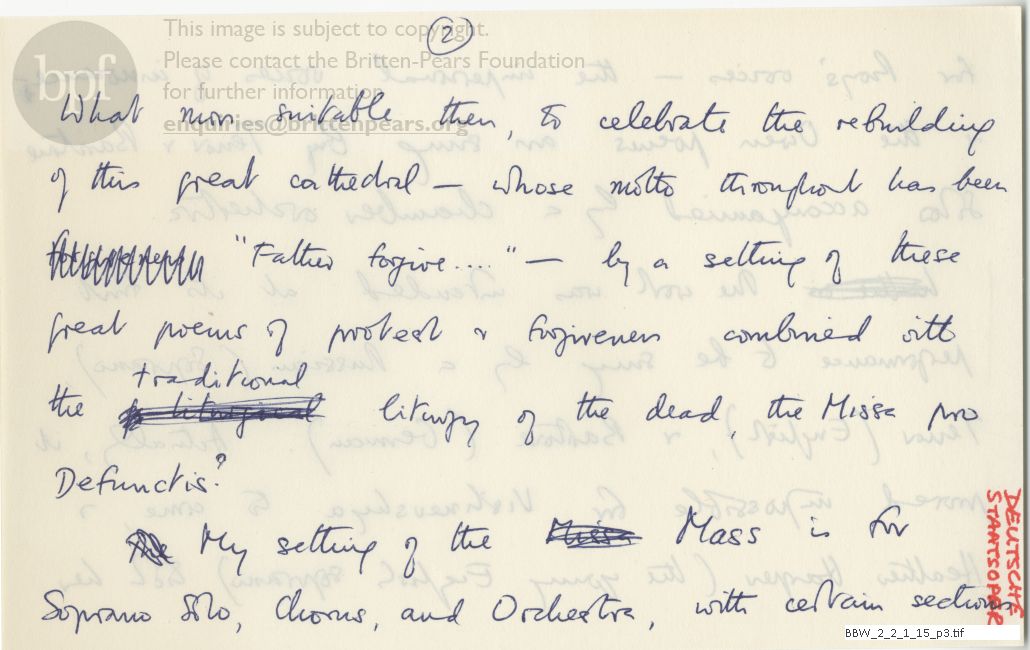 This image is subject to copyright.
Please contact the Britten-Pears Foundation
for further information
enquiries@brittenpears.org
bpf
2
What more suitable then, to celebrate the rebuilding
of this great cathedral — whose motto throughout has been
"Father forgive...." — by a setting of these
great poems of protest & forgiveness combined with
traditional
the liturgical liturgy of the dead, the Missa pro
Defunctis?
The My setting of the Missa Mass is for
Soprano Solo, Chorus, and Orchestra, with certain sections
DEUTSCHE
STAATSOPER
BBW_2_2_1_15_p3.tif